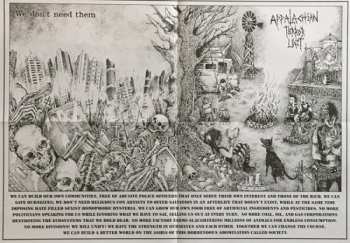 We don't need them
APPALACHIAN
TERROR
UNIT
WE CAN BUILD OUR OWN COMMUNITIES, FREE OF ABUSIVE POLICE OFFICERS THAT ONLY SERVE THEIR OWN INTEREST AND THOSE OF THE RICH. WE CAN
SAVE OURSELVES; WE DON'T NEED RELIGIOUS CON ARTISTS TO OFFER SALVATION IN AN AFTERLIFE THAT DOESN'T EXIST, WHILE AT THE SAME TIME
IMPOSING HATE FILLED SEXIST HOMOPHOBIC HYSTERIA. WE CAN GROW OUR OWN FOOD FREE OF ARTIFICIAL INGREDIENTS AND PESTICIDES. NO MORE
POLITICIANS SPEAKING FOR US WHILE IGNORING WHAT WE HAVE TO SAY, SELLING US OUT AT EVERY TURN. NO MORE COAL, OIL, AND GAS CORPORATIONS
DESTROYING THE ECOSYSTEMS THAT WE HOLD DEAR. NO MORE FACTORY FARMS SLAUGHTERING MILLIONS OF ANIMALS FOR ENDLESS CONSUMPTION.
NO MORE DIVISIONS! WE WILL UNIFY! WE HAVE THE STRENGTH IN OURSELVES AND EACH OTHER. TOGETHER WE CAN CHANGE THE COURSE.
WE CAN BUILD A BETTER WORLD IN THE ASHES OF THIS HORRENDOUS ABOMINATION CALLED SOCIETY.